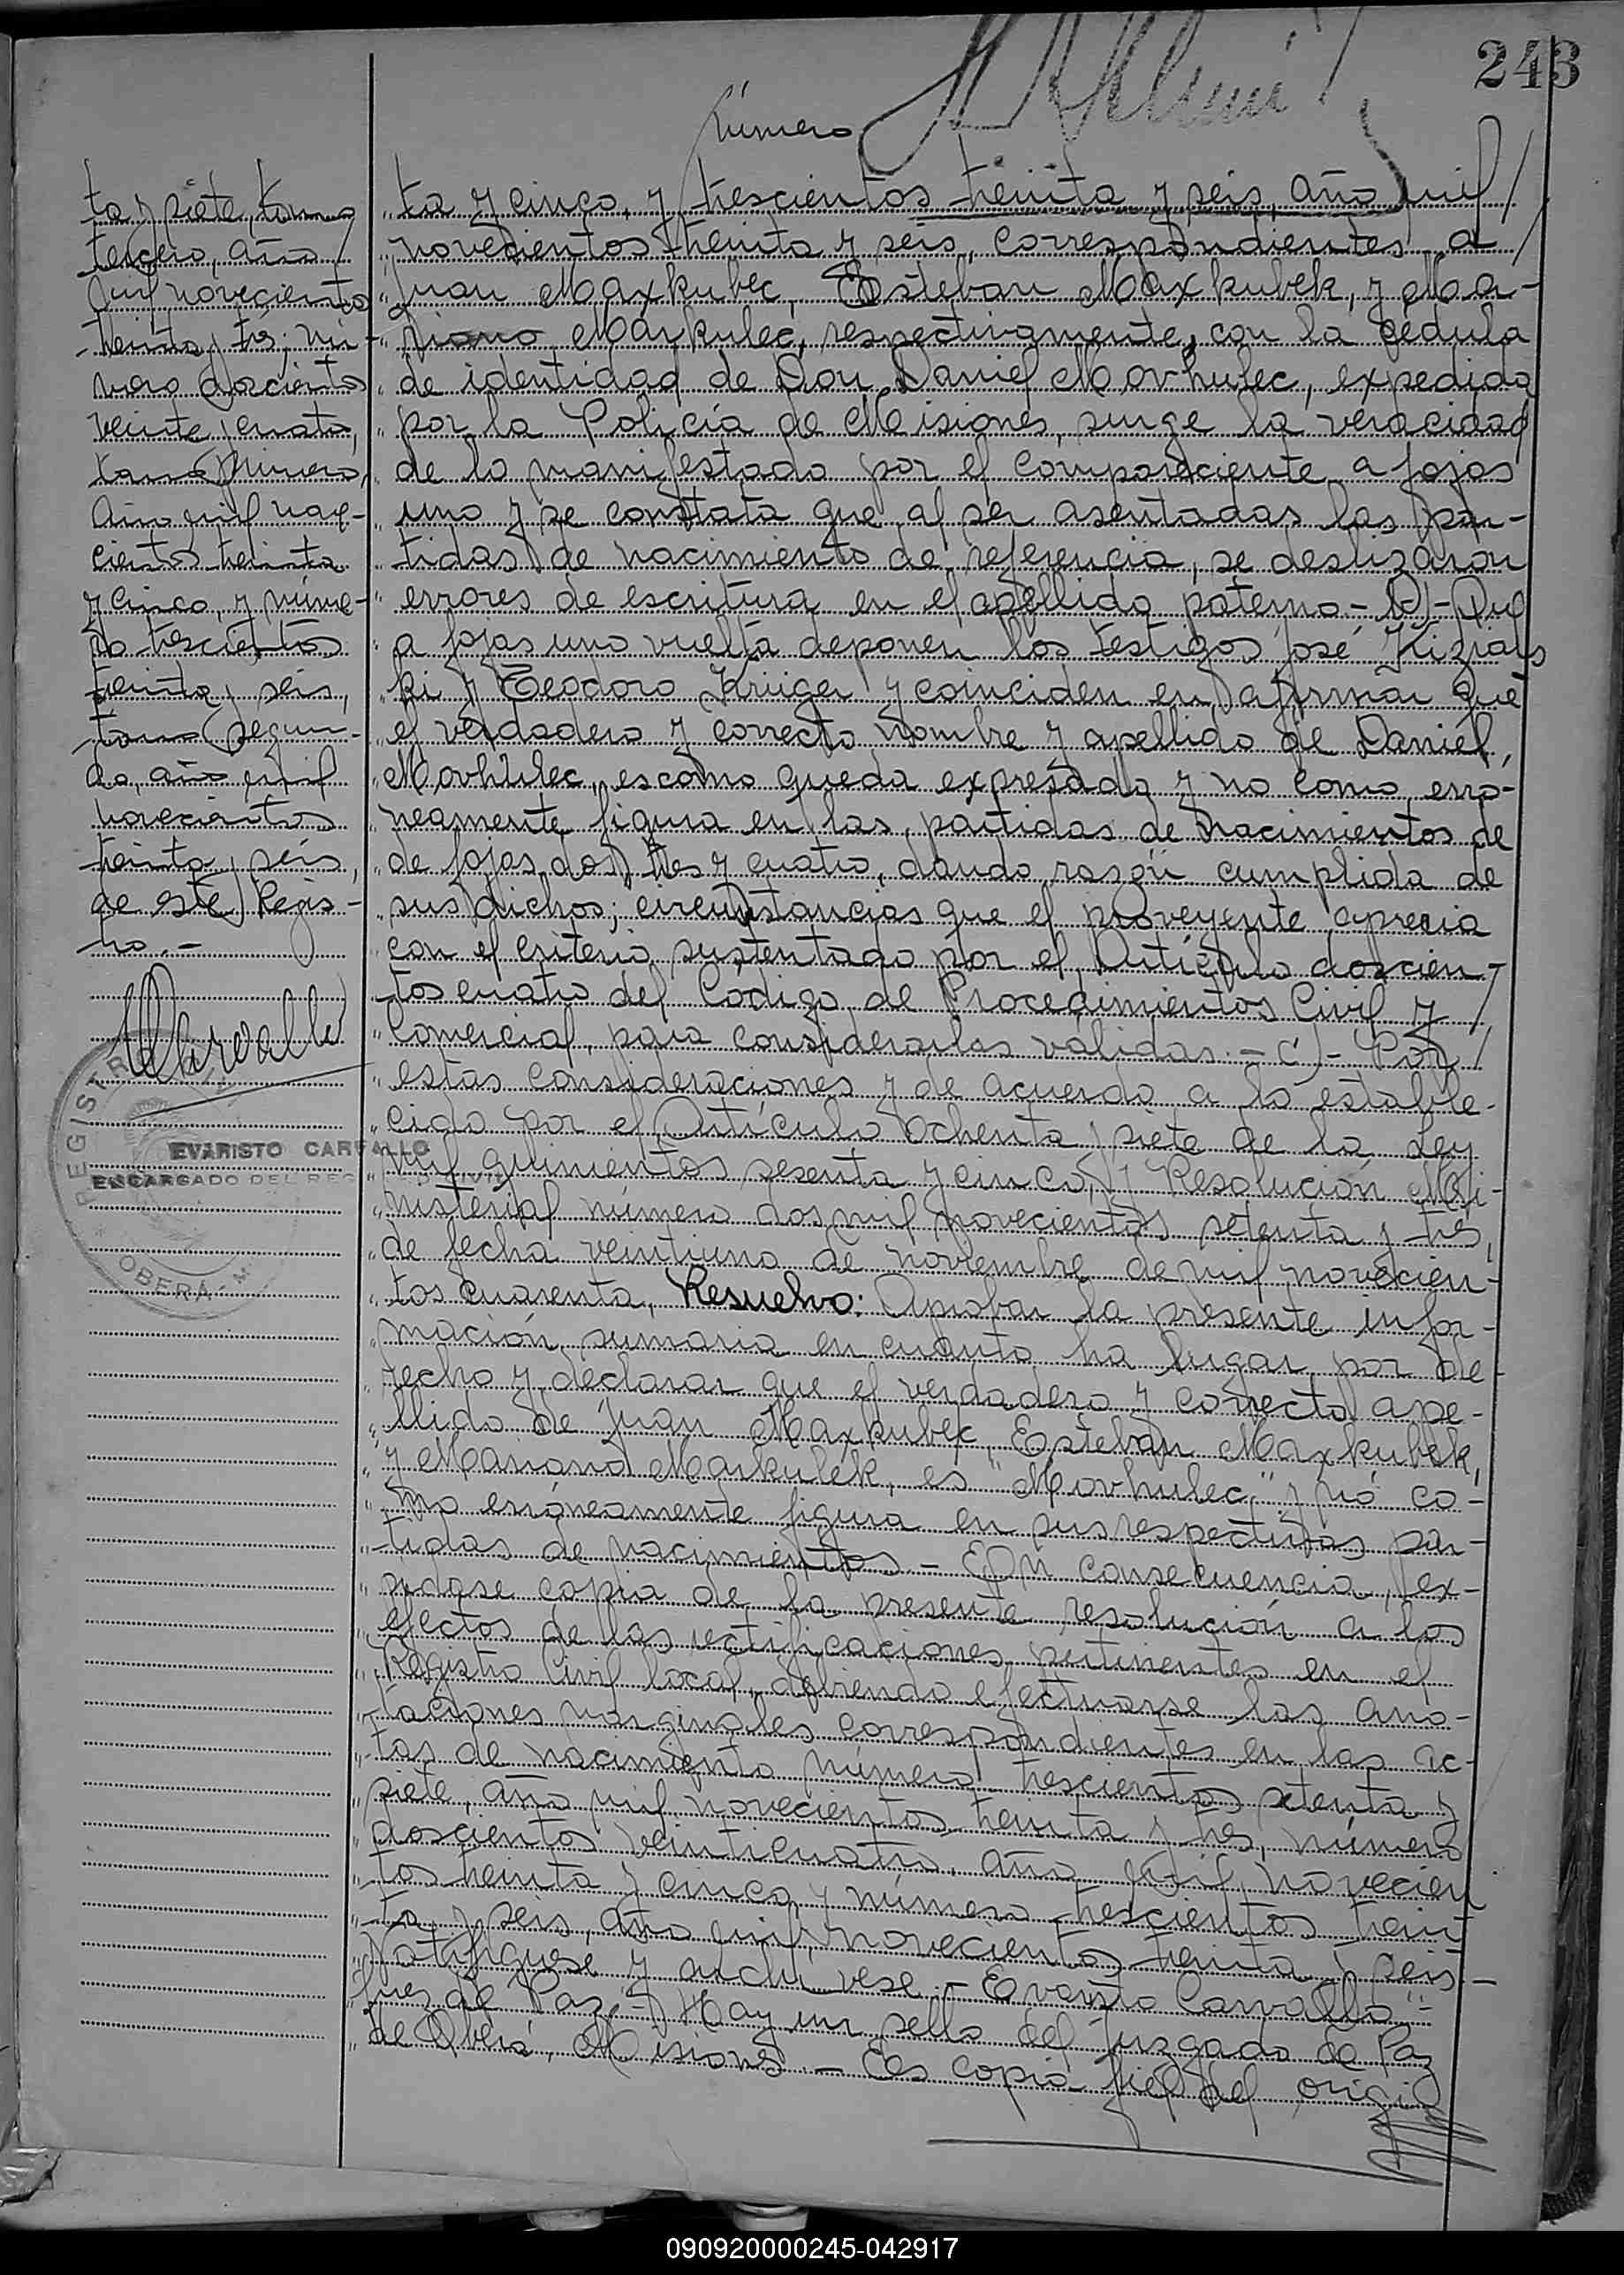 243
Número
ta y siete, tomo
tercero, año
mil novecientos
treinta y tres; nú-
mero doscientos
veinte y cuatro,
tomo primero,
año mil nove-
cientos treinta
y cinco, y núme-
ro trescientos
treinta y seis,
tomo segun-
do, año mil
novecientos
treinta y seis,
de este Regis-
tro.-
REGISTR
EVARISTO CARVALLO
ENCARGADO DEL REG CIVIL
OBERÁ - M
"ta y cinco, y trescientos treinta y seis, año mil
"novecientos treinta y seis, correspondientes a
"Juan Maxkubec, Esteban Maxkubek, y Ma-
"riano Markulec, respectivamente, con la cédula
"de identidad de Don Daniel Movhulec, expedida
"por la Policía de Misiones, surge la veracidad
"de lo manifestado por el compareciente a fojas
"uno y se constata que al ser asentadas las par-
"tidas de nacimiento de referencia, se deslizaron
"errores de escritura en el apellido paterno.- b)- Que
"a fojas uno vuelta deponen los testigos José Kizials
"ki y Teodoro Krüger y coinciden en afirmar que
"el verdadero y correcto nombre y apellido de Daniel
"Movhulec, es como queda expresado y no como erró-
"neamente figura en las partidas de nacimientos de
"de fojas dos, tres y cuatro, dando razón cumplida de
"sus dichos; circunstancias que el proveyente aprecia
"con el criterio sustentado por el Artículo doscien-
"tos cuatro del Codigo de Procedimientos Civil y
"Comercial, para considerarlas válidas.- c)- Por
"estas consideraciones y de acuerdo a lo estable-
"cido por el Artículo ochenta y siete de la Ley
"mil quinientos sesenta y cinco, y Resolución Mi-
"nisterial número dos mil novecientos setenta y tres,
"de fecha veintiuno de noviembre de mil novecien-
"tos cuarenta, Resuelvo: Aprobar la presente infor-
"mación sumaria en cuanto ha lugar por de-
"recho y declarar que el verdadero y correcto ape-
"llido de Juan Maxkubek, Esteban Maxkubek,
"y Mariano Markulek, es "Movhulec," y nó co-
"mo erróneamente figura en sus respectivas par-
"tidas de nacimientos.- En consecuencia, ex-
"pídase copia de la presente resolución a los
"efectos de las rectificaciones pertinentes en el
"Registro Civil local, debiendo efectuarse las ano-
"taciones marginales correspondientes en las ac-
"tas de nacimiento número trescientos setenta y
"siete, año mil novecientos treinta y tres, número
"doscientos veinticuatro, año mil novecien
"tos treinta y cinco y número trescientos trein
"ta y seis, año mil novecientos treinta y seis.-
"Notifíquese y archívese.- Evaristo Carvallo"-
"Juez de Paz.- Hay un sello del Juzgado de Paz
"de Oberá, Misiones.- Es copia fiel del origi
090920000245-042917